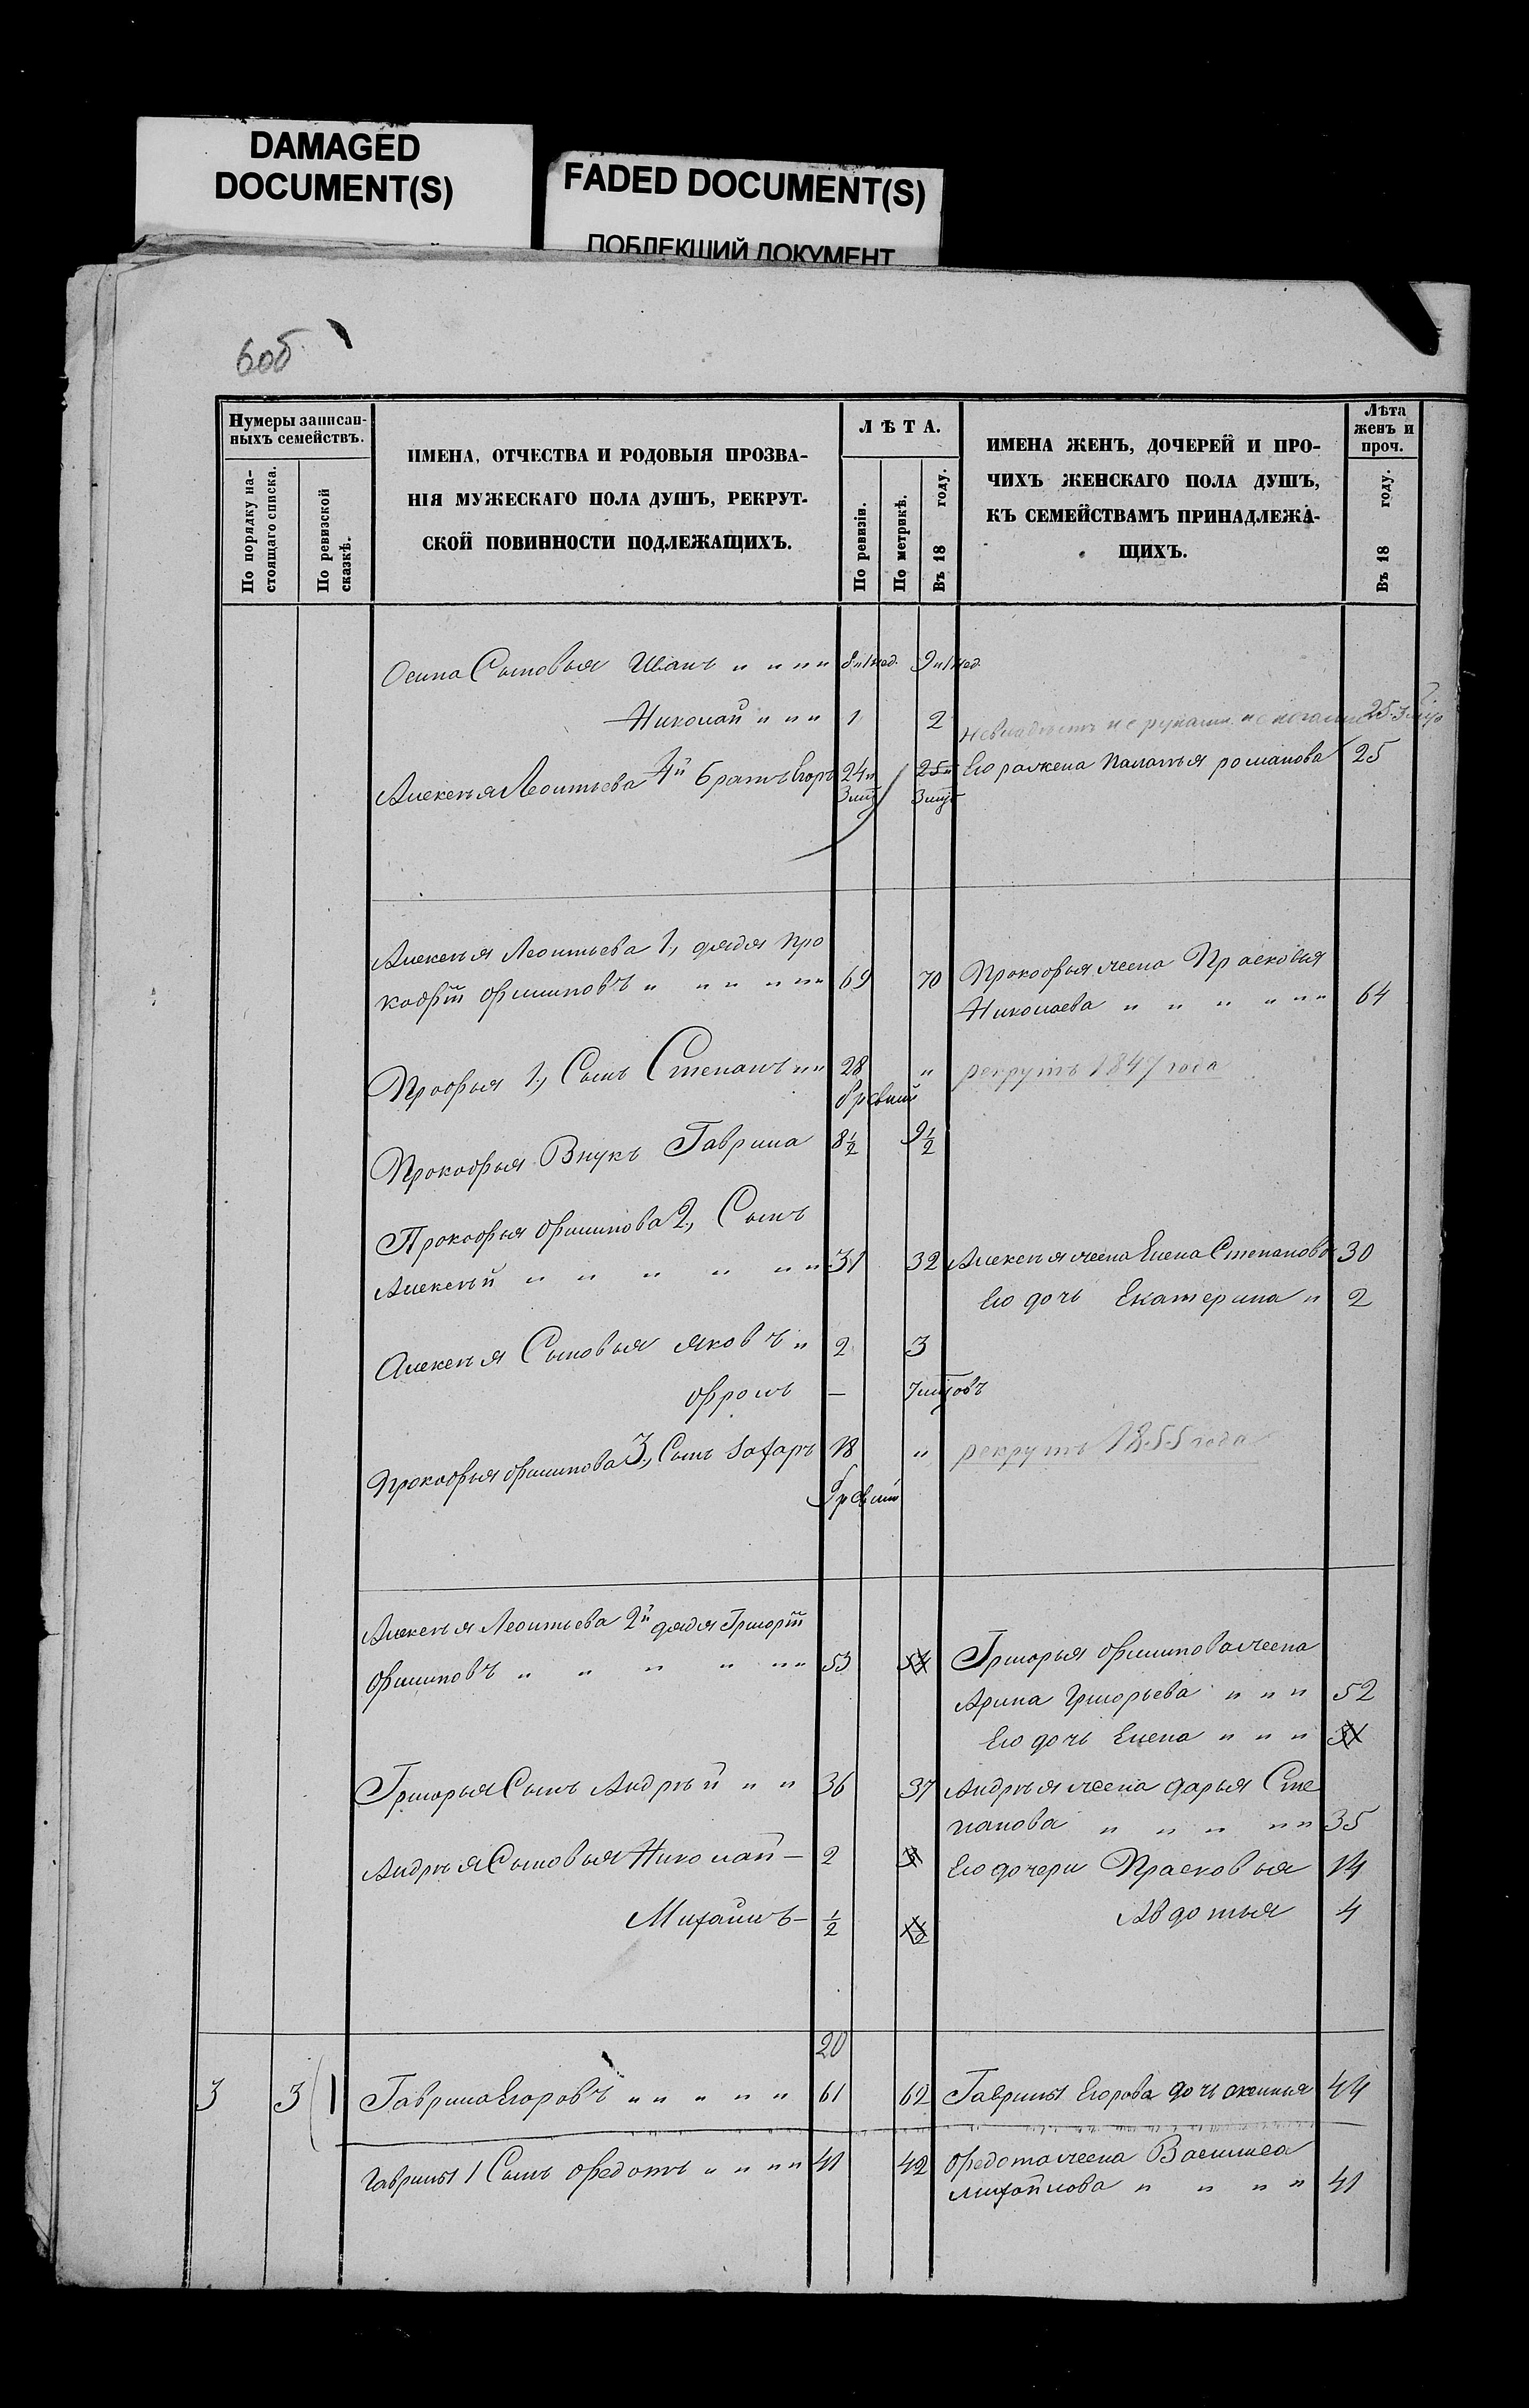 DAMAGED
DOCUMENT(S)
FADED DOCUMENT(S)
ПОБЛЕКШИЙ ДОКУМЕНТ
6об
Нумеры записан-
ныхъ семействъ.
По порядку на-
стоящаго списка.
По ревизской
сказкѣ.
ИМЕНА, ОТЧЕСТВА И РОДОВЫЯ ПРОЗВА-
НІЯ МУЖЕСКАГО ПОЛА ДУШЪ, РЕКРУТ-
СКОЙ ПОВИННОСТИ ПОДЛЕЖАЩИХЪ.
ЛѢТА.
По ревизіи.
По метрикѣ.
Въ 18 году.
ИМЕНА ЖЕНЪ, ДОЧЕРЕЙ И ПРО-
ЧИХЪ ЖЕНСКАГО ПОЛА ДУШЪ,
КЪ СЕМЕЙСТВАМЪ ПРИНАДЛЕЖА-
ЩИХЪ.
Лѣта
женъ и
проч.
Въ 18 году.
Осипа Сыновья Иванъ " " " " 8 9
Николай " " " 1 2
Алексѣя Леонтьева 4й братъ Егоръ 24 25 Его жена Палагья романова 25
Алексѣя Леонтьева 1, дядя Про
кофій филиповъ " " " " " " 69 70 Прокофья жена Прасковья
Николаева " " " " " " 64
Профья 1, Сынъ Степанъ " " 28 " рекрутъ 1847 года
Прокофья Внукъ Гаврила 8½ 9½
Прокофья филипова 2, Сынъ
Алексѣй " " " " " " 31 32 Алексѣя жена Елена Степанова 30
Его дочь Екатерина " 2
Алексѣя Сыновья яковъ " 2 3
фролъ —
Прокофья филипова 3, Сынъ Захаръ 18 " рекрутъ 1855 года
Алексѣя Леонтьева 2й дядя Григорій
филиповъ " " " " " " 53 54 Григорья филипова жена
Арина Григорьева " " " 52
Его дочь Елена " " "
Григорья Сынъ Андрѣй " " 36 37 Андрѣя жена дарья Сте
панова " " " " " 35
Андрѣя Сыновья Николай — 2 3 Его дочери Прасковья 14
Михайлъ — ½ Авдотья 4
20
3 3 1 Гаврила Егоровъ " " " " " 61 62 Гаврилы Егорова дочь аксинья 44
Гаврилы 1 Сынъ федотъ " " " " 41 42 федота жена Василиса
михайлова " " " " 41